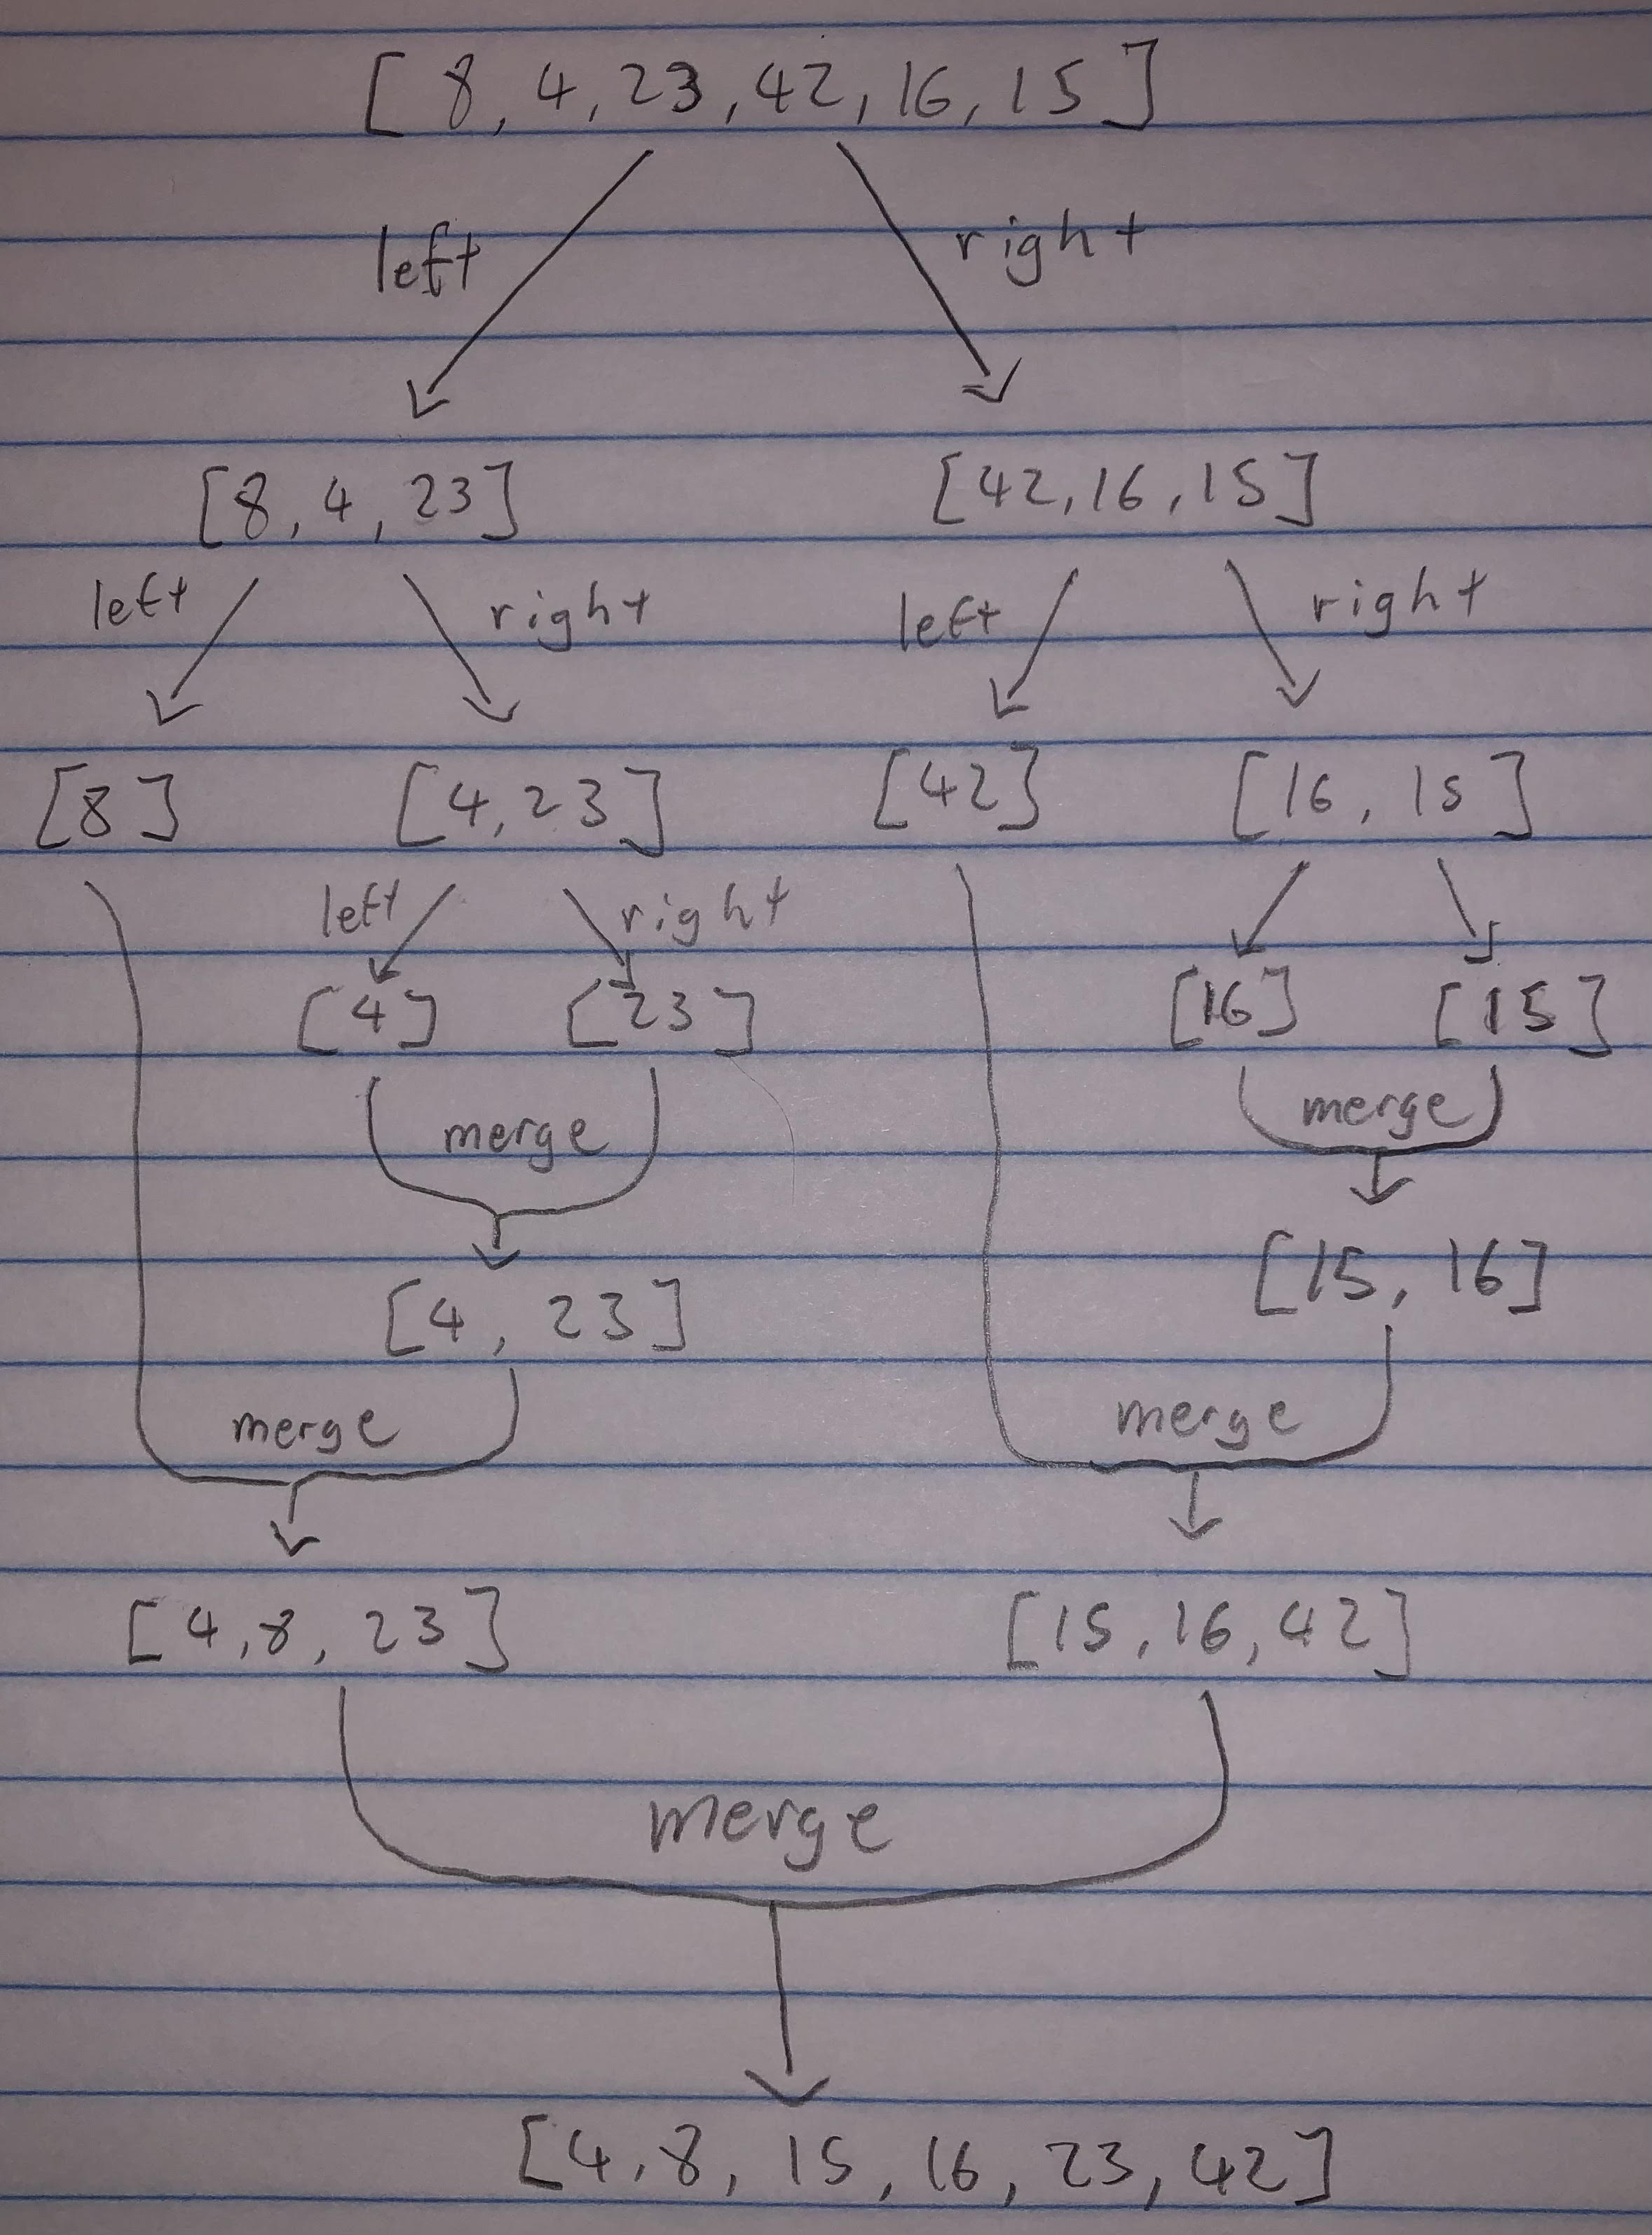 [8, 4, 23, 42, 16, 15]
left right
[8, 4, 23] [42, 16, 15]
left right left right
[8] [4, 23] [42] [16, 15]
left right
[4] [23] [16] [15]
merge merge
[4, 23] [15, 16]
merge merge
[4, 8, 23] [15, 16, 42]
merge
[4, 8, 15, 16, 23, 42]